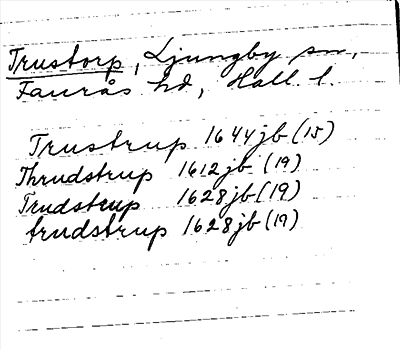 Trustorp, Ljungby sn,
Faurås hd, Hall. l.
Trustrup 1644 jb (15)
Thrudstrup 1612 jb (19)
Trudstrup 1628 jb (19)
trudstrup 1628 jb (19)